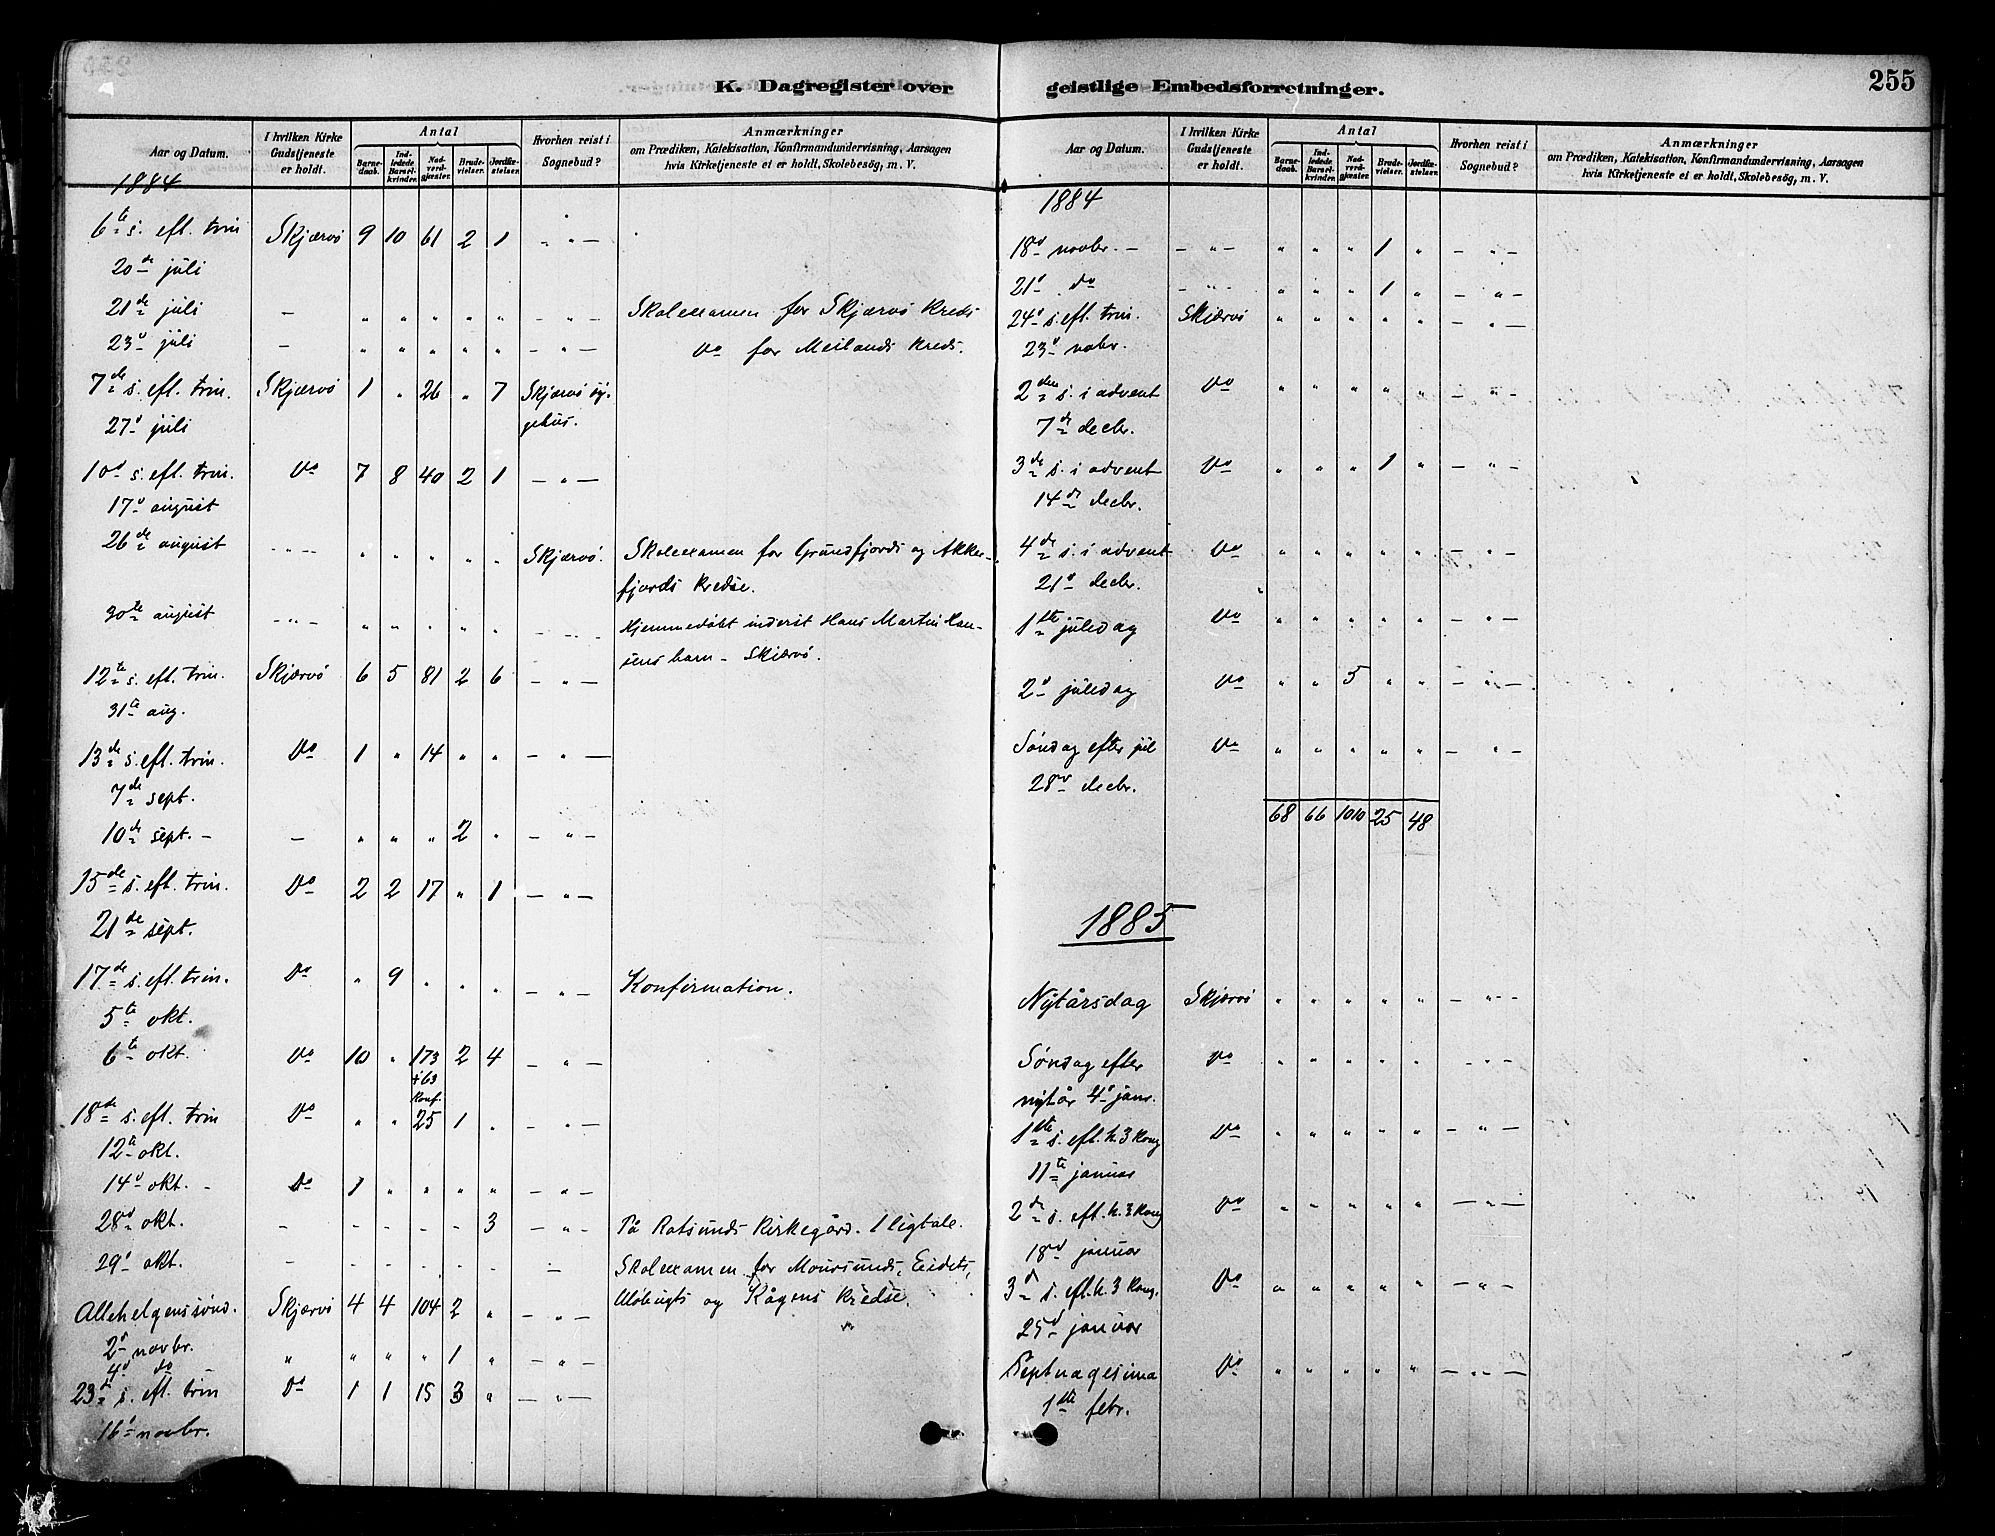 K. Dagregister over geistlige Embedsforretninger. 255
Aar og Datum. I hvilken Kirke Gudstjeneste er holdt. Antal Barnedaab. Indledede Barselkvinder. Nadverdgjæster. Brudevielser. Jordfæstelser. Hvorhen reist i Sognebud? Anmærkninger
om Prædiken, Katekisation, Konfirmandundervisning, Aarsagen
hvis Kirketjeneste ei er holdt, Skolebesög, m. V.
1884
6te s. eft. trin Skjærvö 9 10 61 2 1 " " —
20de juli
21de juli — " " " " " — " — Skoleexamen for Skjærvö Kreds
23d juli — " " " " " — " — Do for Meilands Kreds.
7de s. eft. trin. Skjærvö 1 " 26 " 7 Skjærvö sy-
27d juli gehus.
10d s. eft. trin. Do 7 8 40 2 1 — " —
17d august
26de august " " " " " " Skjærvö. Skoleexamen for Grundfjords og Akker-
fjords Kredse.
30te august " " " " " " — " — Hjemmedöbt inderst Hans Martin Han-
sens barn - Skjærvö.
12te s. eft. trin. Skjærvö 6 5 81 2 6 — " —
31te aug.
13de s. eft. trin. Do 1 " 14 " " — " —
7de sept.
10de sept. — — " " " 2 " — " —
15de s. eft. trin. Do 2 2 17 " 1 — " —
21de sept.
17de s. eft. trin. Do " 9 " " " — " — Konfirmation.
5te okt.
6te okt. Do 10 " 173 2 4 — " —
+63
Konf.
18de s. eft. trin Do " " 25 1 " — " —
12te okt.
14d okt. - Do 1 " " " " — " —
28d okt. - - - - - 3 — " - På Rotsunds Kirkegård. 1 ligtale.
29d okt. - - - - - - — Skoleexamen for Maursunds, Eidets,
Allehelgenssönd. Skjærvö 4 4 104 2 " — " — og Kågens Kredse.
2d novbr.
4d do " " " " 1 " — " —
23de s. eft. trin Do 1 1 15 3 " — " —
16d novbr.
Aar og Datum. I hvilken Kirke Gudstjeneste er holdt. Antal Barnedaab. Indledede Barselkvinder. Nadverdgjæster. Brudevielser. Jordfæstelser. Hvorhen reist i Sognebud? Anmærkninger
om Prædiken, Katekisation, Konfirmandundervisning, Aarsagen
hvis Kirketjeneste ei er holdt, Skolebesög, m. V.
1884
18d novbr. — — " — " " " 1 " — " —
21d do — " — " " " 1 " — " —
24d s. eft. trin. Skjærvö " " " " " — " —
23d nobr.
2den s. i advent Do " " " " " — " —
7de decbr.
3de s. i advent Do " " " 1 " — " —
14de decbr.
4de s. i advent Do " " " " " — " —
21d decbr.
1ste juledag Do " " " " " — " —
2d juledag Do " " 5 " " — " —
Söndag efter jul Do " " " " " — " —
28de decbr.
68 66 1010 25 48
1885
Nytårsdag Skjærvö " " " " " — " —
Söndag efter Do " " " " " — " —
nytår 4d janr.
1ste s. eft. h. 3 Kong Do " " " " " — " —
11te januar
2de s. eft. h. 3 Kong Do " " " " " — " —
18d januar
3d s. eft. h. 3 Kong. Do " " " " " — " —
25d januar
Septuagesima Do " " " " " — " —
1ste febr.